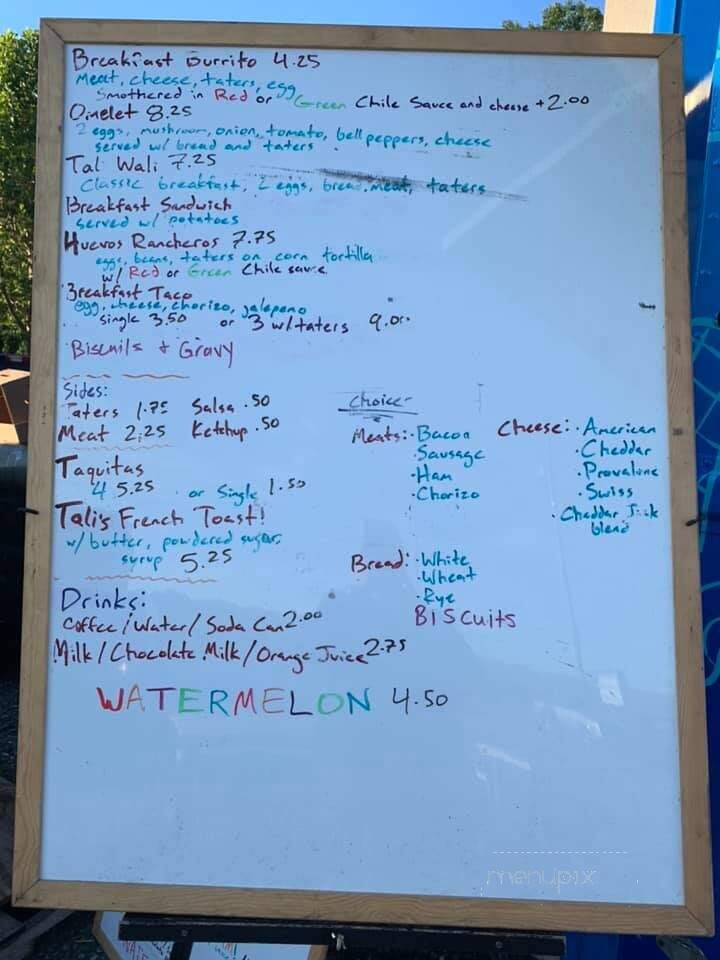 Breakfast Burrito 4.25
Meat, cheese, taters, egg
Smothered in Red or Green Chile Sauce and cheese +2.00
Omelet 8.25
2 eggs, mushroom, onion, tomato, bell peppers, cheese
served w/ bread and taters
Tal Wali 7.25
Classic breakfast, 2 eggs, bread, meat, taters
Breakfast Sandwich
served w/ potatoes
Huevos Rancheros 7.75
eggs, beans, taters on corn tortilla
w/ Red or Green Chile sauce
Breakfast Taco
egg, cheese, chorizo, jalepeno
single 3.50 or 3 w/taters 9.00
Biscuits + Gravy
Sides:
Taters 1.75 Salsa .50
Meat 2.25 Ketchup .50
Taquitas
4 5.25 or Single 1.50
Tali's French Toast!
w/ butter, powdered sugar,
syrup 5.25
Choice
Meats: · Bacon
· Sausage
· Ham
· Chorizo
Cheese: · American
· Cheddar
· Provalone
· Swiss
· Cheddar Jack
blend
Bread: · White
· Wheat
· Rye
BIScuits
Drinks:
Coffee/Water/Soda Can 2.00
Milk/Chocolate Milk/Orange Juice 2.75
WATERMELON 4.50
menupix